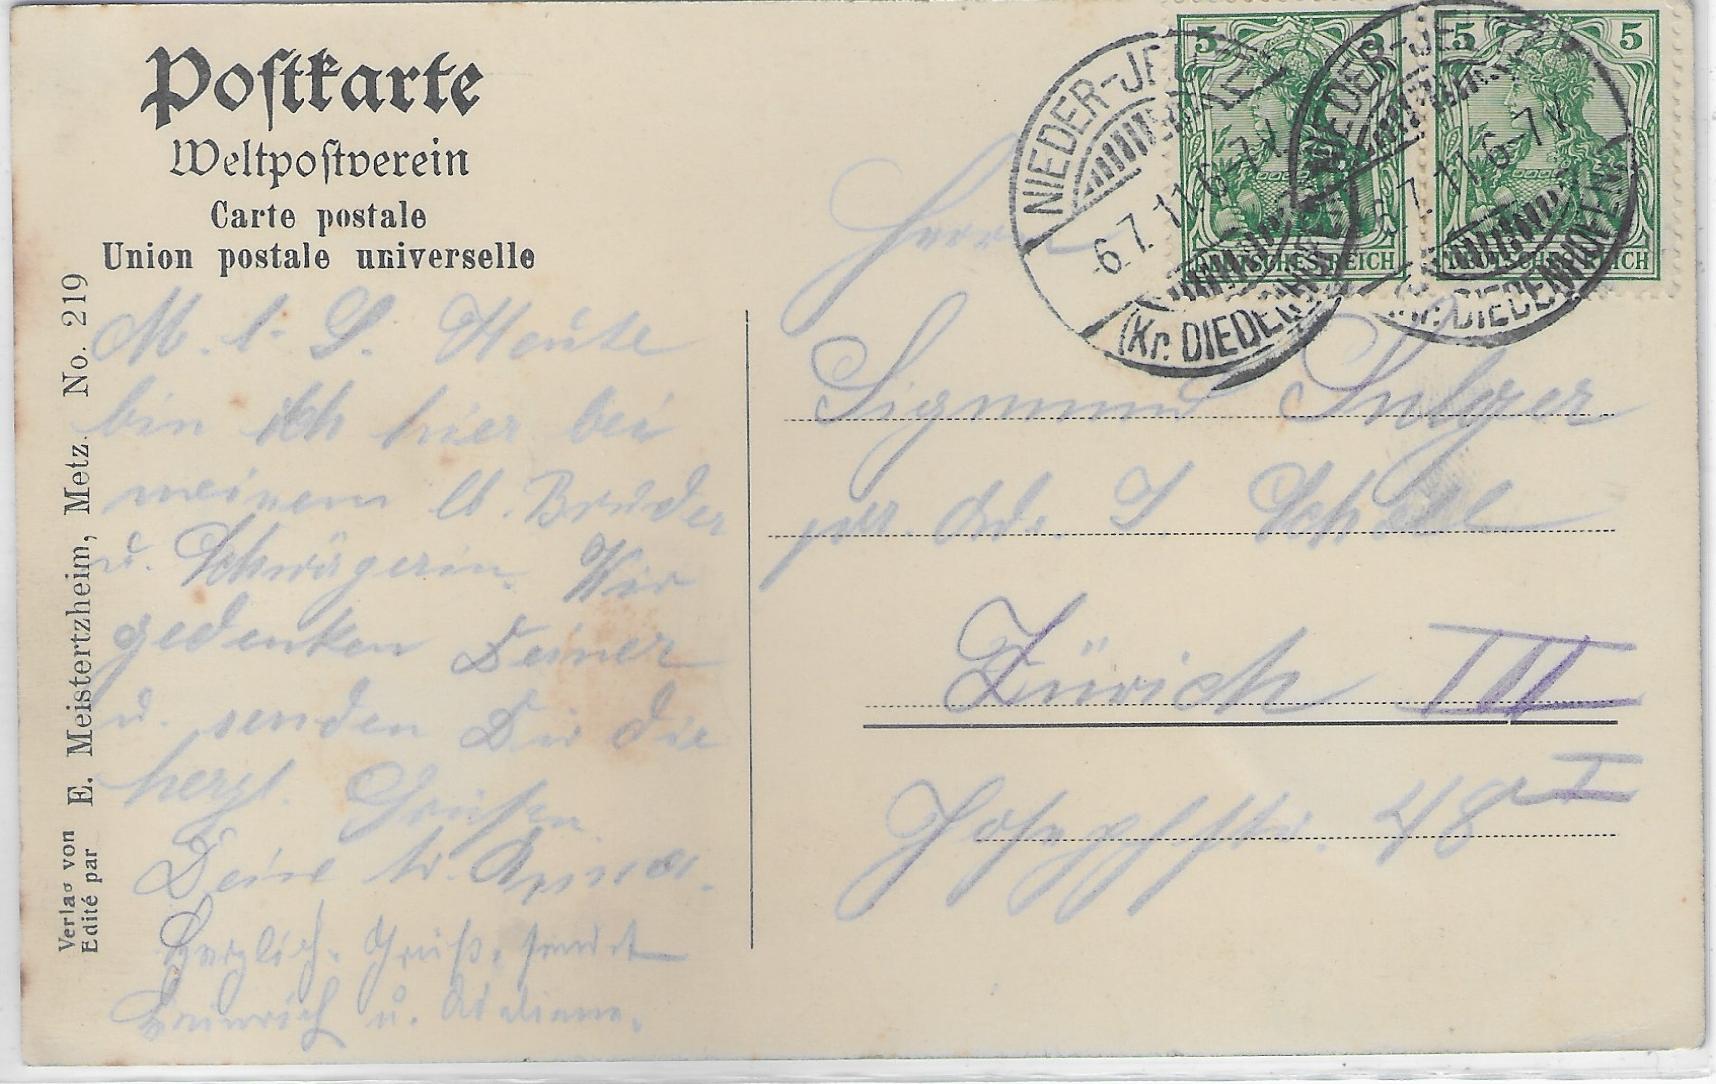 Postkarte
Weltpostverein
Carte postale
Union postale universelle
Verlag von
Edité par
E. Meistertzheim, Metz. No. 219
M. l. S. Heute
bin ich hier bei
meinem lb. Bruder
u. Schwägerin. Wir
gedenken Deiner
u. senden Dir die
herzl. Grüße
Deine tr. Anna.
Herzlich. Grüß. sendet
Heinrich u.
5 5
DEUTSCHES REICH
5 5
DEUTSCHES REICH
NIEDER-JEUTZ
6.7.11.6-7V
(Kr. DIEDENHOFEN)
NIEDER-JEUTZ
6.7.11.6-7V
(Kr. DIEDENHOFEN)
Herrn
Sigmund Sulzer
pr. Ad. J.
Zürich III
Josephstr. 48 I